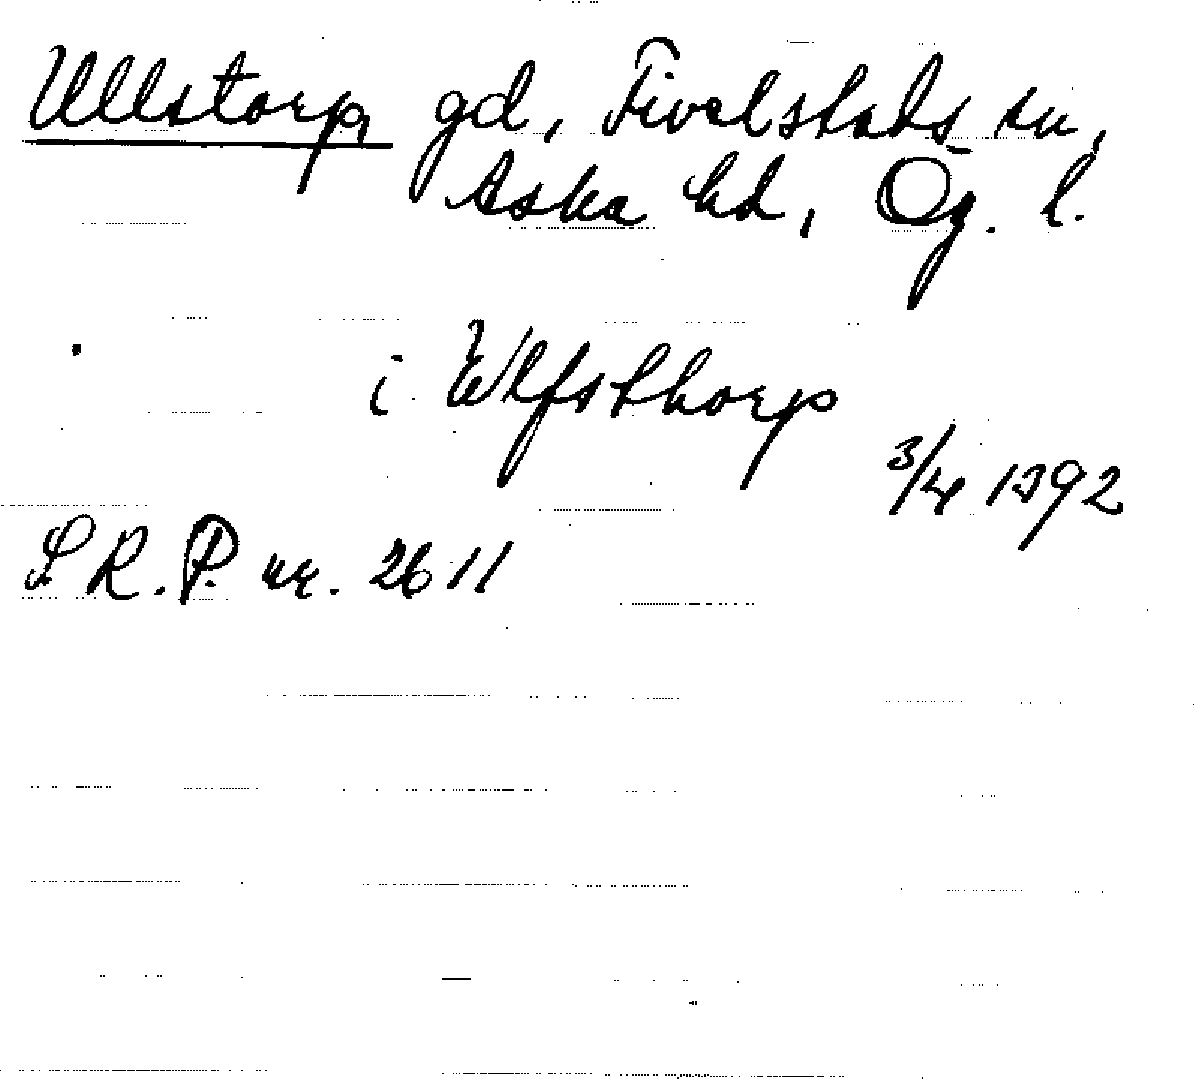 Ullstorp gd, Fivelstads sn,
Aska hd, Ög. l.
i Wlfsthorp
3/4 1392
S.R.P. nr. 2611